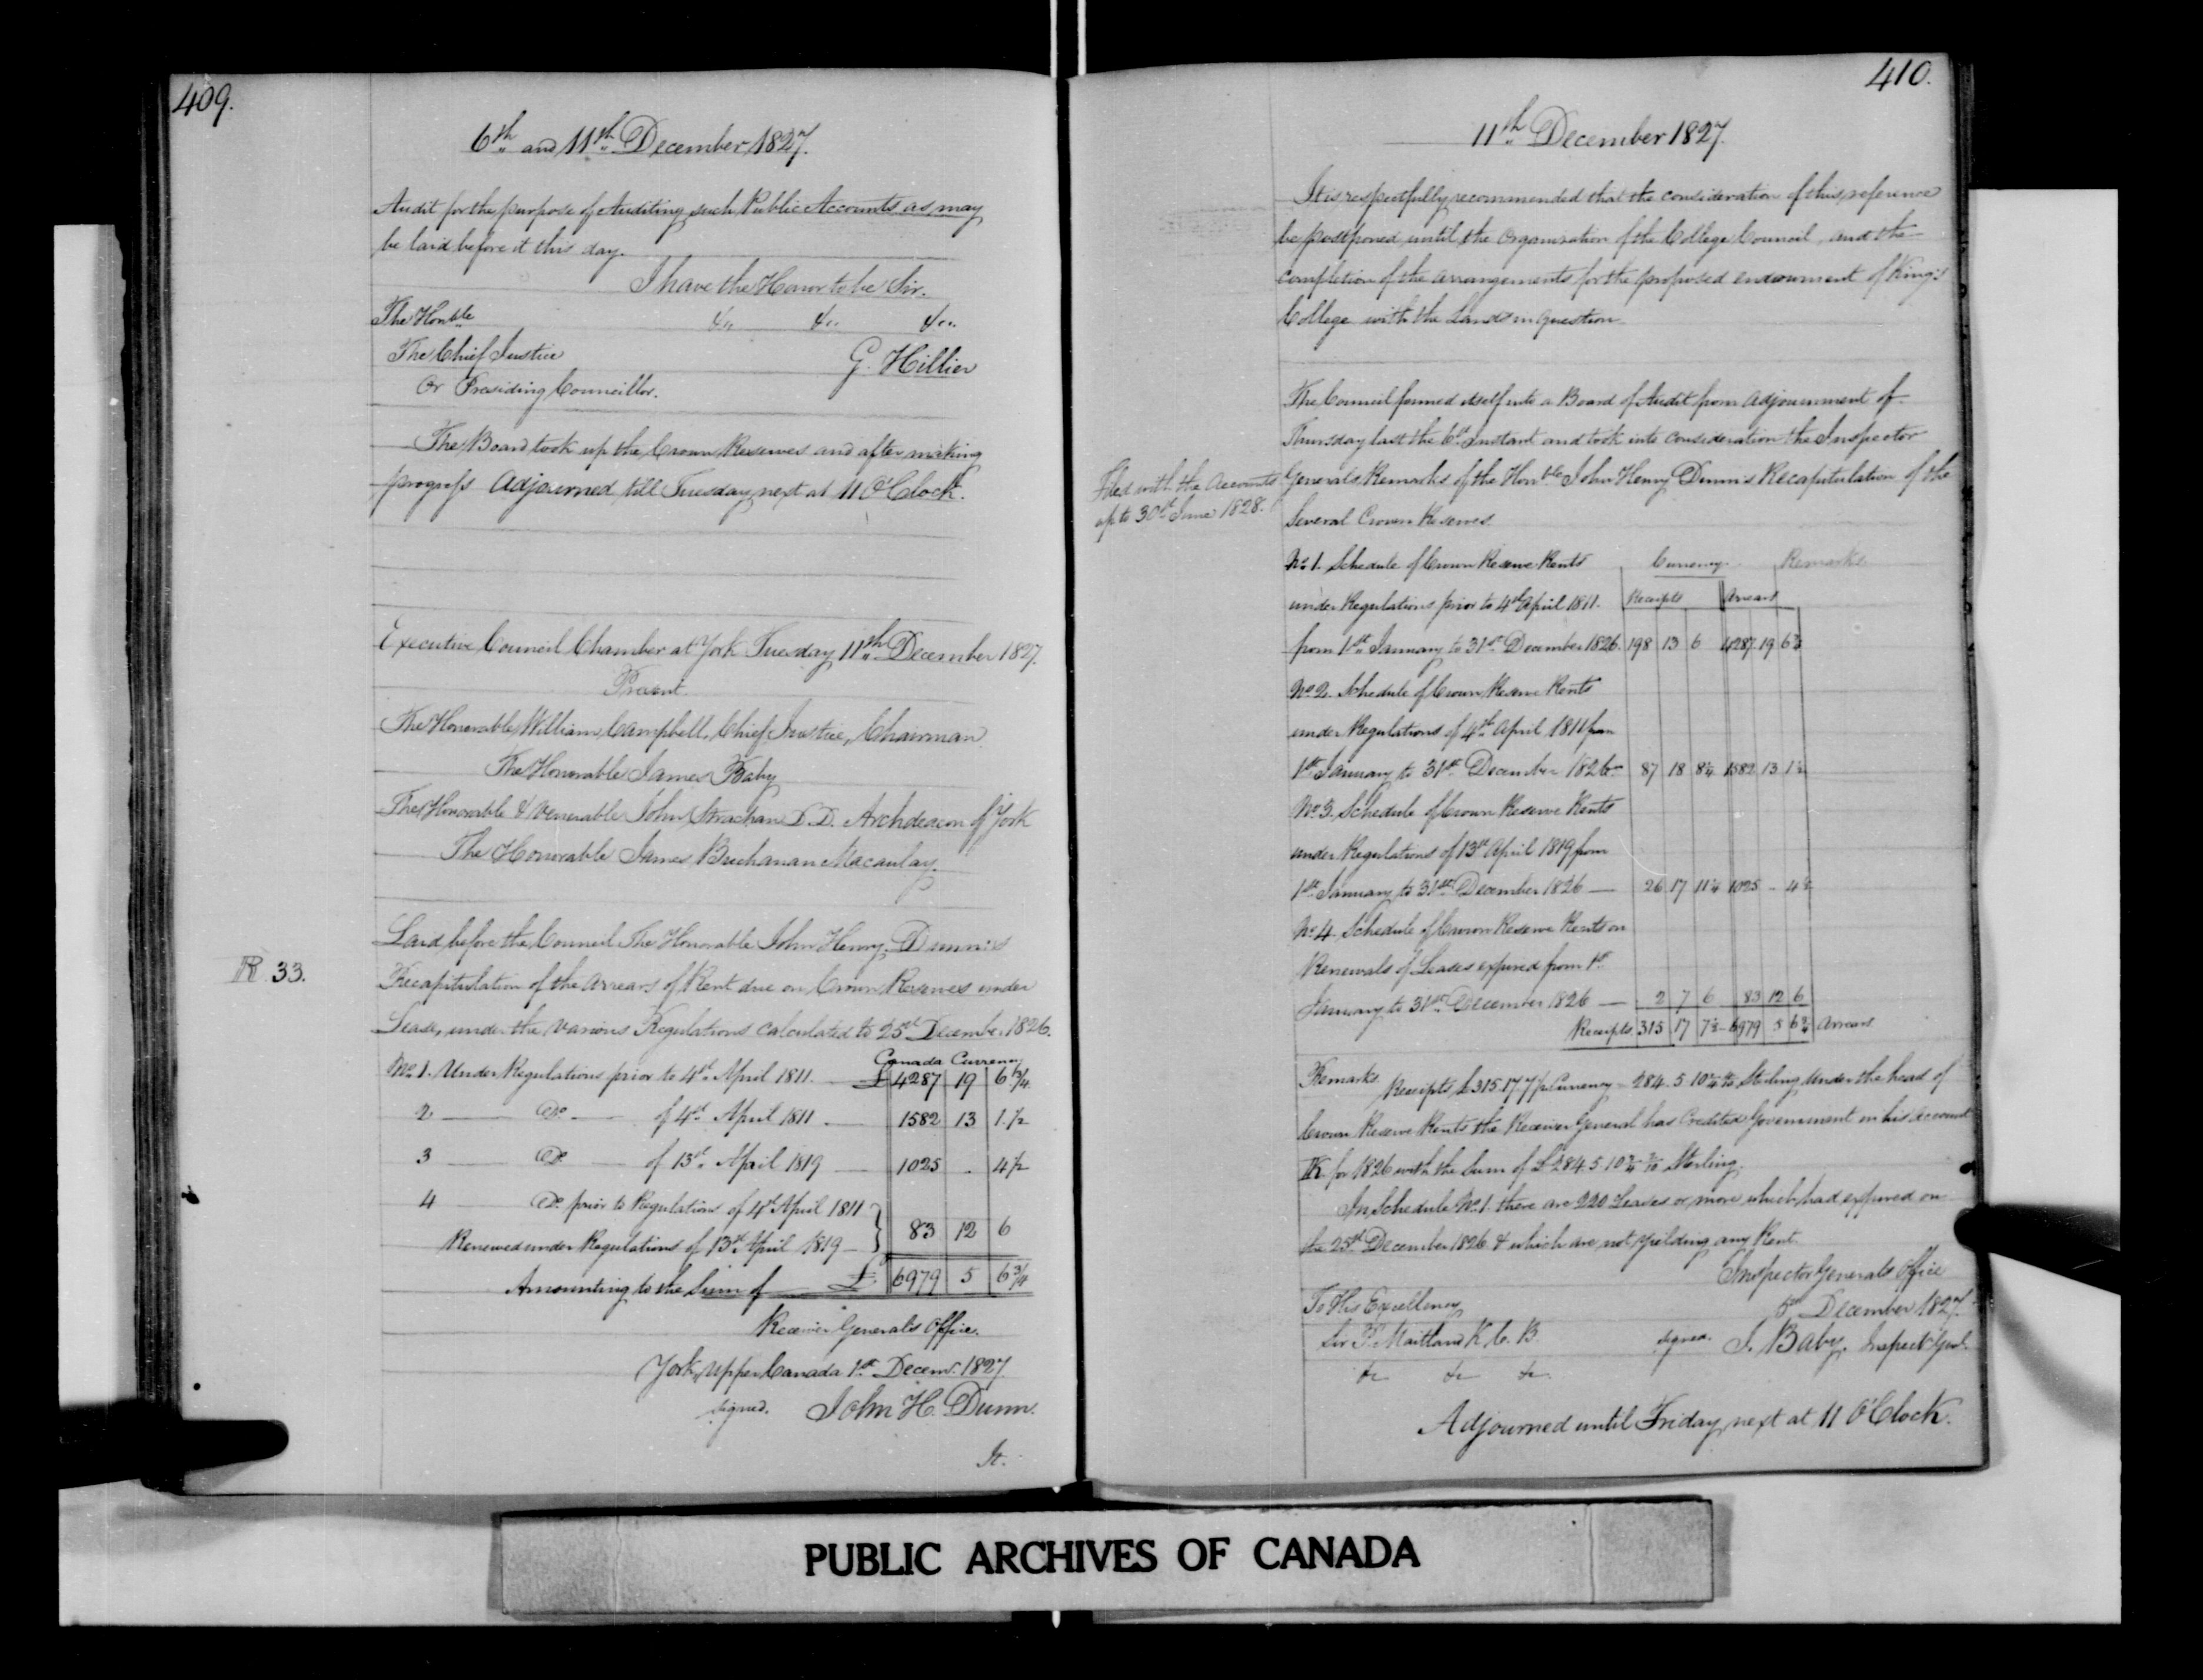 409.
6th and 11th December 1827.
Audit for the purpose of Auditing such Public Accounts as may
be laid before it this day.
I have the Honor to be Sir.
The Honble &c. &c. &c.
The Chief Justice G. Hillier
Or Presiding Councillor.
The Board took up the Crown Reserves and after making
progress Adjourned till Tuesday next at 11 O'Clock.
Executive Council Chamber at York Tuesday 11th December 1827.
Present
The Honorable William Campbell, Chief Justice, Chairman
The Honorable James Baby
The Honorable & Venerable John Strachan D.D. Archdeacon of York
The Honorable James Buchanan Macaulay.
Laid before the Council The Honorable John Henry Dunn's
R. 33. Recapitulation of the Arrears of Rent due on Crown Reserves under
Lease, under the various Regulations calculated to 25th December 1826.
Canada Currency
No. 1. Under Regulations prior to 4th April 1811. £ 4287 19 6 3/4
2 Do. of 4th April 1811 1582 13 1 1/2
3 Do. of 13th April 1819 1025 . 4 1/2
4 Do. prior to Regulations of 4th April 1811 }
Renewed under Regulations of 13th April 1819 } 83 12 6
Amounting to the Sum of £ 6979 5 6 3/4
Receiver General's Office.
York, Upper Canada 1st Decemr. 1827
signed. John H. Dunn.
It.
410.
11th December 1827.
It is respectfully recommended that the consideration of this reference
be postponed until the Organization of the College Council, and the
completion of the arrangements for the proposed endowment of King's
College with the Lands in question
The Council formed itself into a Board of Audit from Adjournment of
Thursday last the 6th Instant and took into consideration the Inspector
Filed with the Accounts
up to 30th June 1828.
Generals Remarks of the Honble John Henry Dunn's Recapitulation of the
Several Crown Reserves.
No. 1. Schedule of Crown Reserve Rents Currency Remarks
under Regulations prior to 4th April 1811. Receipts Arrears
from 1st January to 31st December 1826. 198 13 6 4287 19 6 3/4
No. 2. Schedule of Crown Reserve Rents
under Regulations of 4th April 1811 from
1st January to 31st December 1826 87 18 8 1/4 1582 13 1 1/2
No. 3. Schedule of Crown Reserve Rents
under Regulations of 13th April 1819 from
1st January to 31st December 1826 26 17 11 1/4 1025 - 4 1/2
No. 4. Schedule of Crown Reserve Rents on
Renewals of Leases expired from 1st
January to 31st December 1826 2 7 6 83 12 6
Receipts 315 17 7 1/2 6979 5 6 3/4 Arrears
Remarks Receipts £315.17.7 1/2 Currency 284.5.10 Sterling Under the head of
Crown Reserve Rents the Receiver General has Credited Government in his Account
K for 1826 with the Sum of £284.5.10 Sterling.
In Schedule No. 1. there are 220 Leases or more which had expired on
the 25th December 1826 & which are not yielding any Rent.
Inspector Generals Office
December 1827.
To His Excellency
Sir P. Maitland K.C.B. signed. J. Baby. Inspect. Genl.
&c &c &c.
Adjourned until Friday next at 11 O'Clock.
PUBLIC ARCHIVES OF CANADA